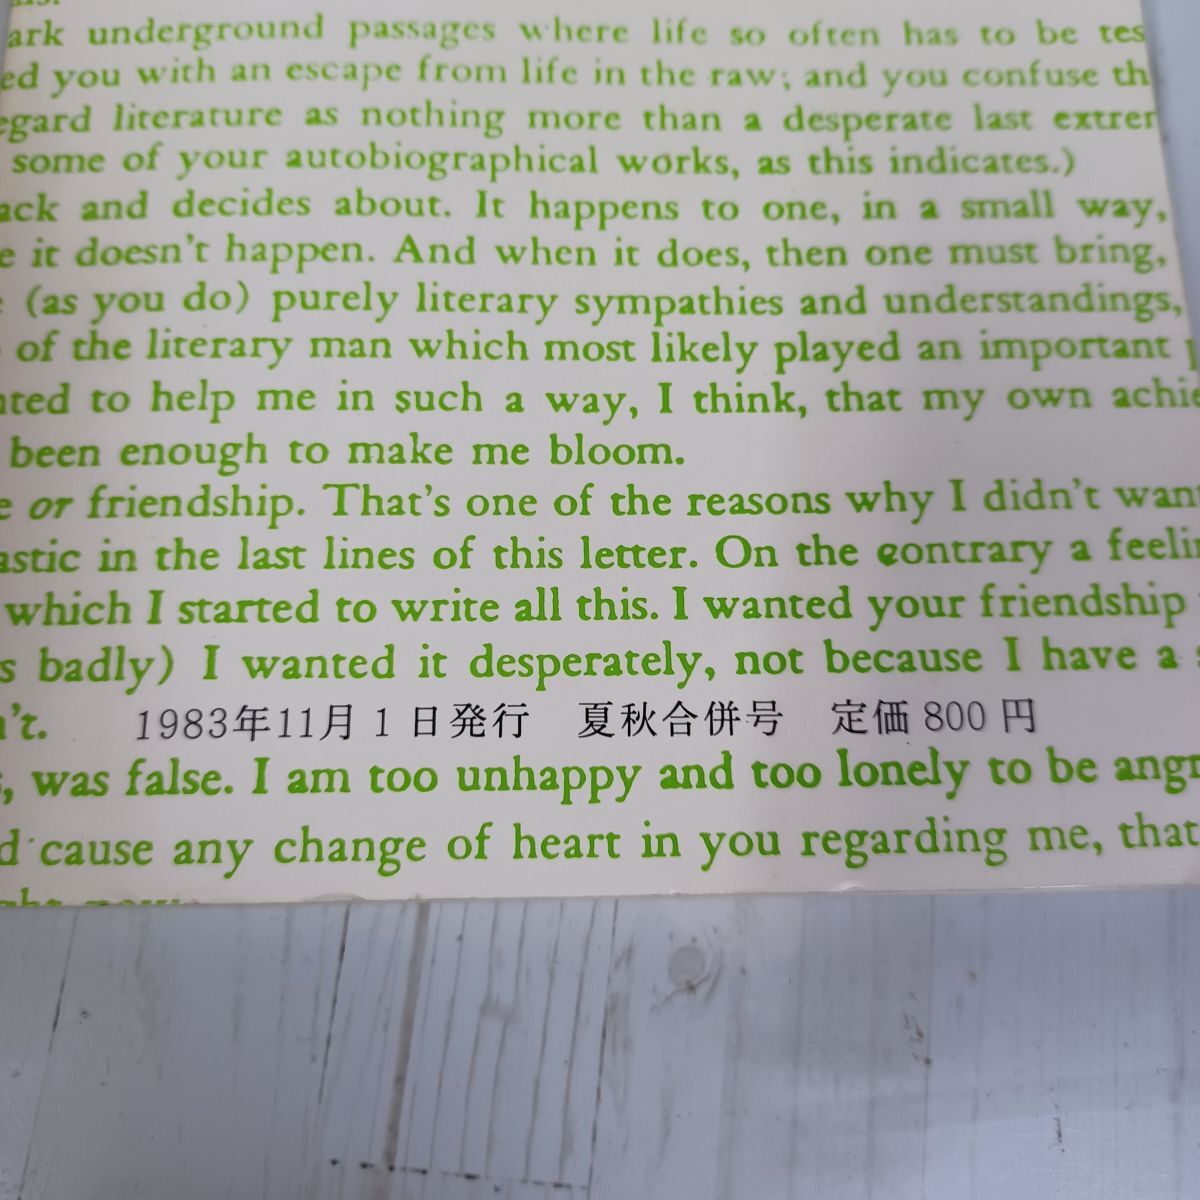 ark underground passages where life so often has to be tes
ed you with an escape from life in the raw; and you confuse th
egard literature as nothing more than a desperate last extrer
some of your autobiographical works, as this indicates.)
ack and decides about. It happens to one, in a small way,
e it doesn't happen. And when it does, then one must bring,
(as you do) purely literary sympathies and understandings,
of the literary man which most likely played an important
ated to help me in such a way, I think, that my own achie
been enough to make me bloom.
e or friendship. That's one of the reasons why I didn't want
astic in the last lines of this letter. On the contrary a feelin
which I started to write all this. I wanted your friendship
s badly) I wanted it desperately, not because I have a s
n't. 1983年11月1日発行 夏秋合併号 定価800円
, was false. I am too unhappy and too lonely to be angr
d cause any change of heart in you regarding me, that